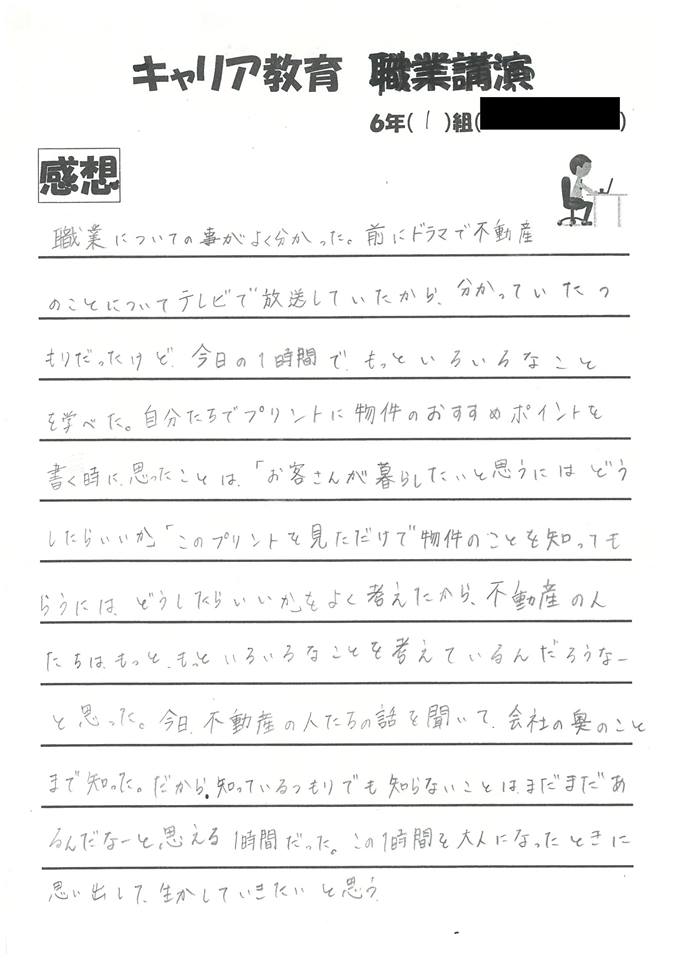 キャリア教育 職業講演
6年(1)組( )
感想
職業についての事がよく分かった。前にドラマで不動産
のことについてテレビで放送していたから、分かっていたつ
もりだったけど、今日の1時間で、もっといろいろなこと
を学べた。自分たちでプリントに物件のおすすめポイントを
書く時に、思ったことは、「お客さんが暮らしたいと思うにはどう
したらいいか」「このプリントを見ただけで物件のことを知っても
らうには、どうしたらいいか」をよく考えたから、不動産の人
たちは、もっと、もっといろいろなことを考えているんだろうなー
と思った。今日、不動産の人たちの話を聞いて、会社の奥のこと
まで知った。だから、知っているつもりでも知らないことは、まだまだあ
るんだなーと、思える1時間だった。この1時間を大人になったときに
思い出して、生かしていきたいと思う。